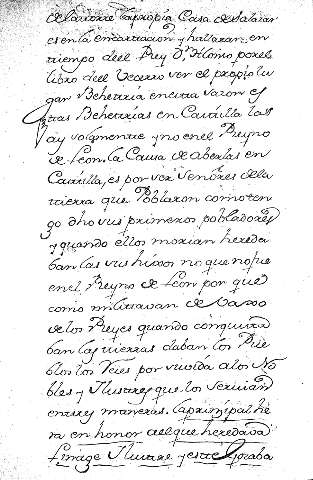 de la torre la propia Casa de Salazar
es en la encartacion, y hallaran, en
tiempo del Rey Dn Alonso por el
libro del Vecerro ver el propio lu
gar Behetria encirra varon es
tras Behetrias en Castilla las
ay Solamente, y no en el Reyno
de Leon. la Causa de aberlas en
Castilla, es por ver Señores dela
tierra que Poblaron como ten
go dho sus primeros pobladores
y quando ellos morian hereda
ban las sus hixos no que no fue
en el Reyno de Leon por que
como militavan de baxo
de los Reyes quando conquista
ban las tierras daban los Pue
blos los Reies por su vida a los No
bles y Ilustres que los servian
en tres maneras. la prinzipal he
ra en honor al que heredava
Linage Ilustre y este gozaba